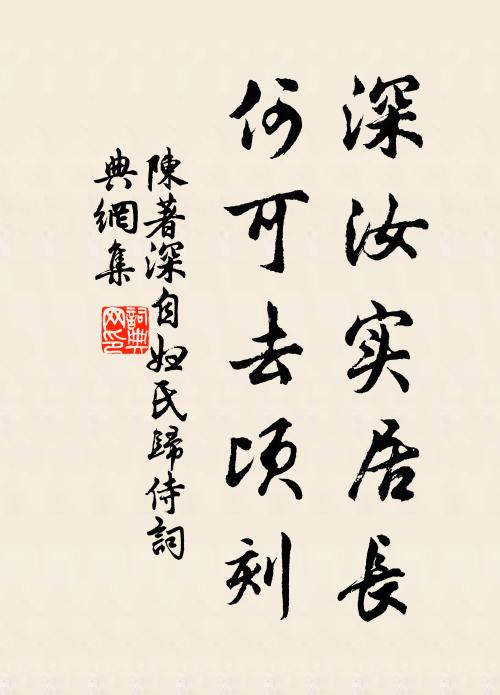 深汝实居長
何可去顷刻
陳著深自妲氏歸侍詞
典網集
詞典网印